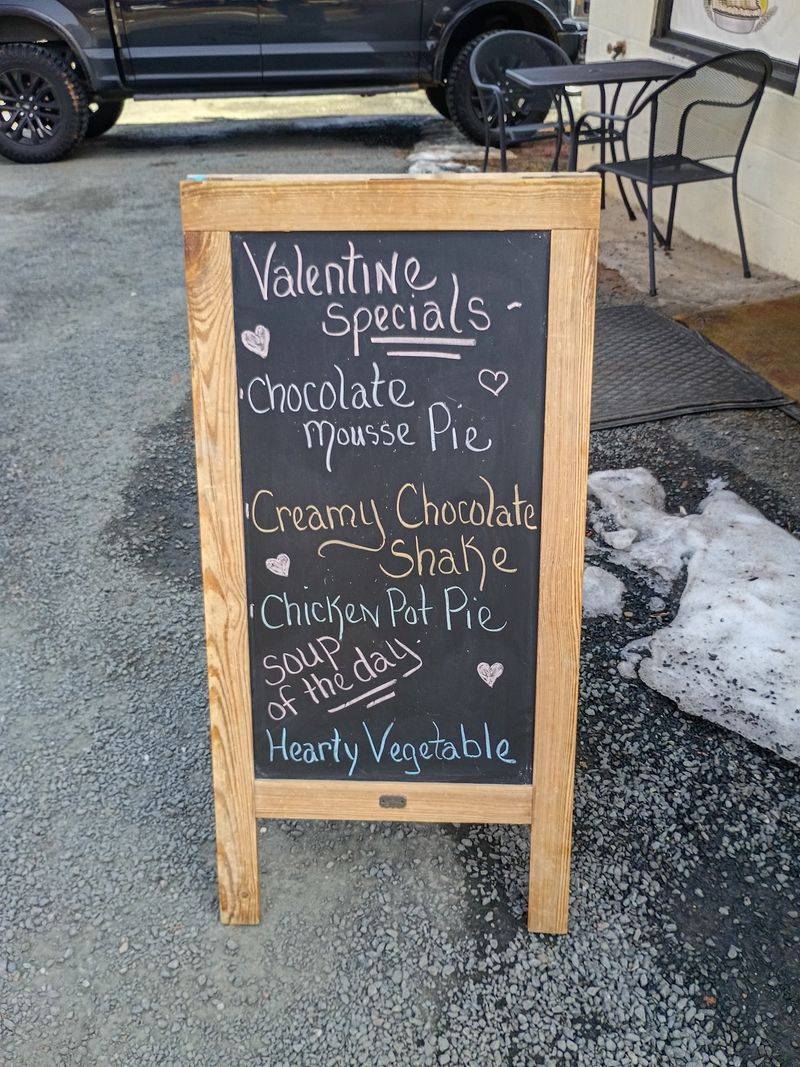 Valentine
specials -
Chocolate
Mousse Pie
Creamy Chocolate
Shake
Chicken Pot Pie
soup
of the day
Hearty Vegetable